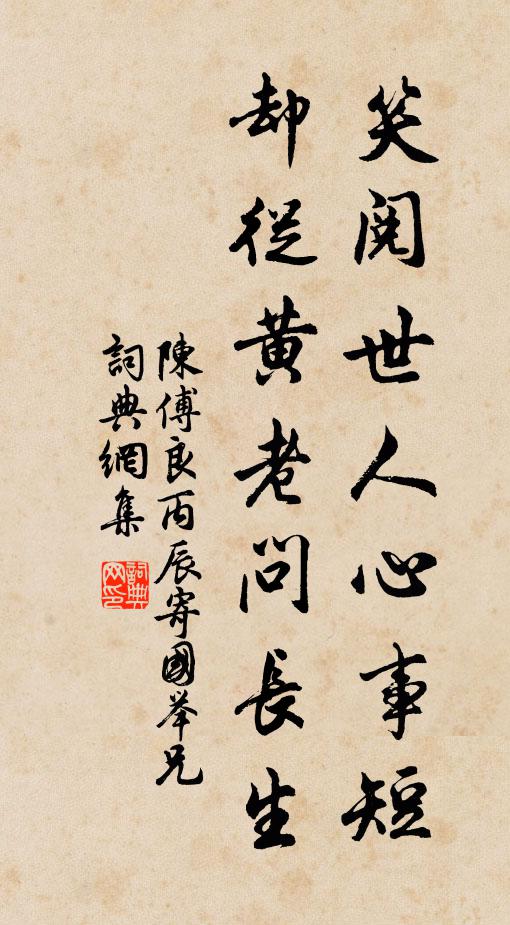 笑閱世人心事短
却從黃老問長生
陳傅良丙辰寄國举兄
詞典網集
詞典网印